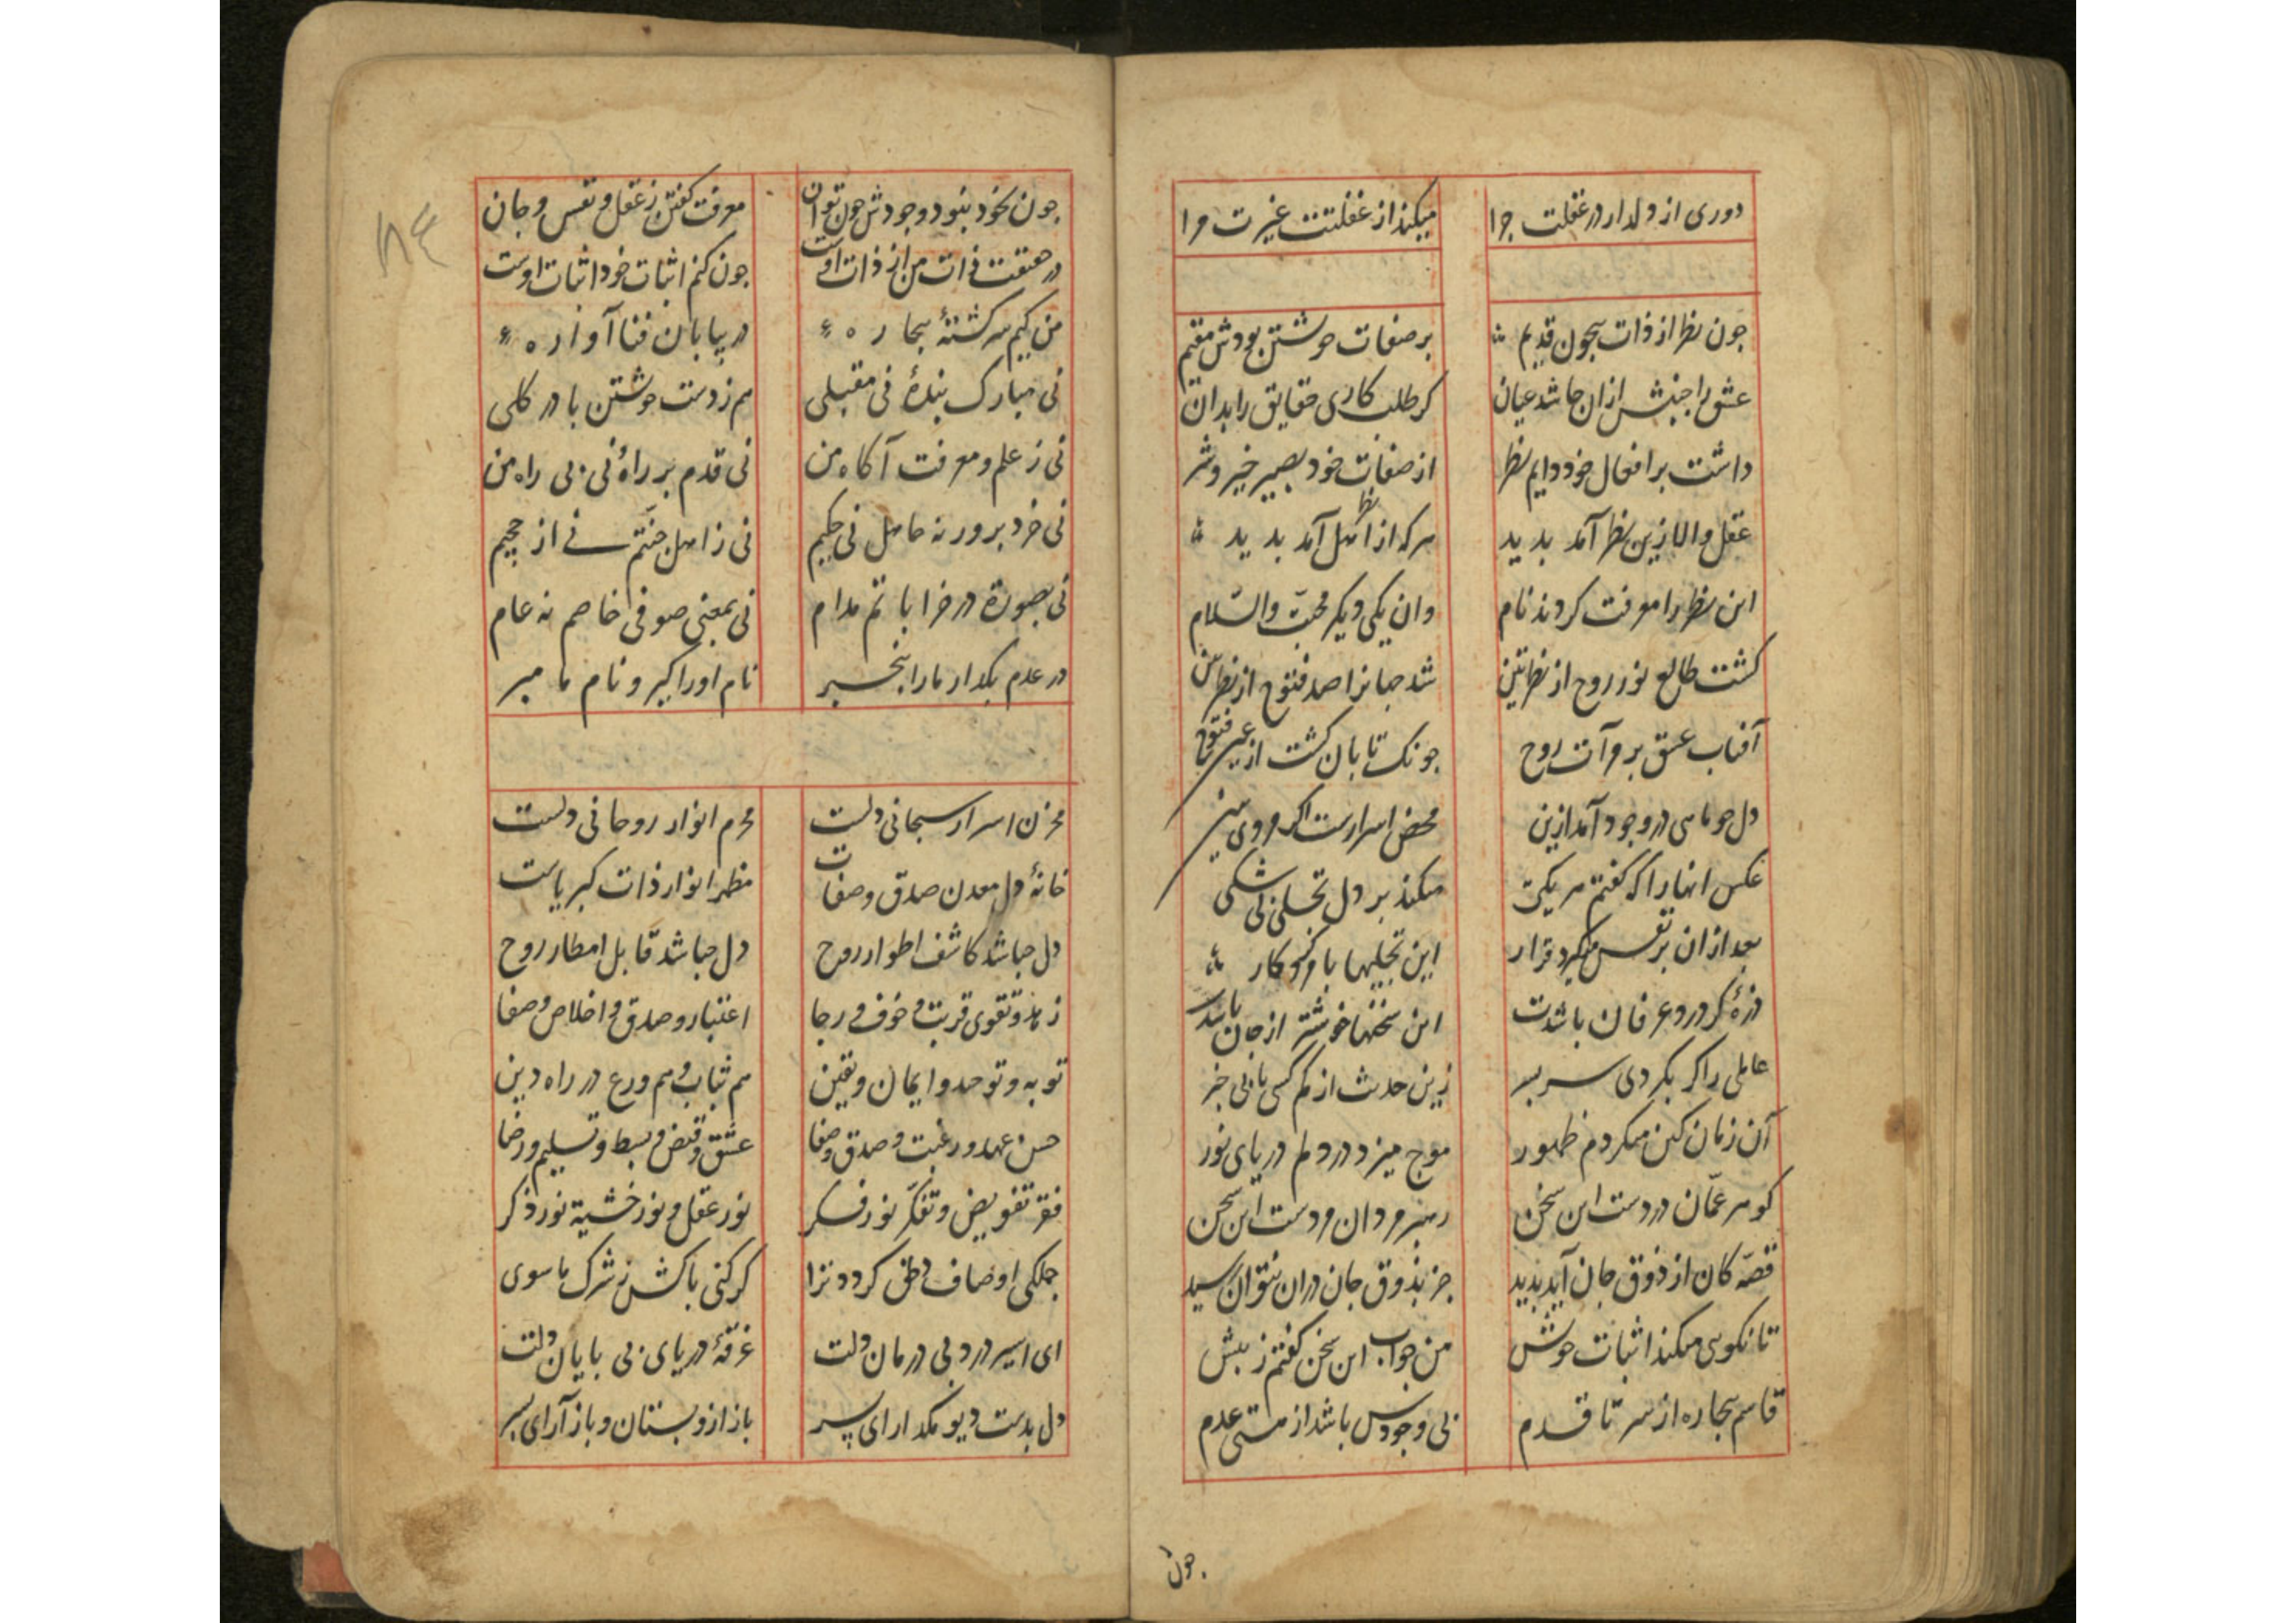 دوری از دلدار در غفلت جرا میکند از غفلتت غیرت مرا
جون نظر از ذات بیجون قدیم بر صفات خوشتن بودش مقیم
عشق را جنبش ازان جا شد عیان کر طلب کاری حقایق را بدان
داشت بر افعال خود دایم نظر از صفات خود بصیر خیر و شر
عقل والا زین نظر آمد بدید هرکه از اهل نظر آمد بدید
این نظر را معرفت کردند نام وان یکی دیکر محبّت والسّلام
کشت طالع نور روح از نظرتین شد جهانرا صد فتوح از نظرتین
آفتاب عشق بر مرآت روح جونک تابان کشت از عین فتوح
دل جو ماهی در وجود آمد ازین محض اسرارست اکر مردی ببین
عکس انها را که کفتم هر یکی میکند بر دل تجلی بی شکی
بعد ازان بر نفس میکیرد قرار این تجلیها بامر کردکار
ذرهٔ کر درد عرفان باشدت این سخنها خوشتر از جان باشدت
عاملی را کر بکردی سر بسر زین حدیث از هم کسی یابی خبر
آن زمان کین میکردم ظهور موج میزد در دلم دریای نور
کوهر عمّان دردست این سخن رهبر مردان مردست این سخن
قصّه کان از ذوق جان آید بدید جز بذوق جان دران نتوان رسید
تا نکویی میکند اثبات خوش من جواب این سخن کفتم ز پیش
قاسم بیجاره از سر تا قدم بی وجودس باشد از هستی عدم
جون
جون بخود نبود وجودش جون توان معرفت کفتن ز عقل و نفس و جان
در حقیقت ذات من از ذات اوست جون کنم اثبات خود اثبات اوست
من کیم سرکشتهٔ بیجاره در بیابان فنا آواره
نی مبارک بندهٔ نی مقبلی هم ز دست خوشتن با در کلی
نی ز علم و معرفت آکاه من نی قدم بر راه نی بی راه من
نی خرد برور نه جاهل نی حکیم نی ز اهل جنّتم نی از جحیم
نی بصورة در خراباتم مدام نی بمعنی صوفی خاصم نه عام
در عدم بکدار ما را بیخبر نام او را کیر و نام ما مبر
مخزن اسرار سبحانی دلست محرم انوار روحانی دلست
خانهٔ دل معدن صدق و صفات مظهر انوار ذات کبریاست
دل جباشد کاشف اطوار روح دل جباشد قابل امطار روح
زهد و تقوی قربت و خوف و رجا اعتبار و صدق و اخلاص و صفا
توبه و توحید و ایمان و یقین هم ثبات و هم ورع در راه دین
حسن عهد و رغبت و صدق و صفا عشق و قبض و بسط و تسلیم و رضا
فقر تفویض و تفکّر نور فکر نور عقل و نور خشیة نور ذکر
جملکی اوصاف دل کردد ترا کر کنی باکش ز شرک ما سوی
ای اسیر درد بی درمان دلت غرقهٔ دریای بی بایان دلت
دل بدست دیو مکدار ای پسر باز ازو بستان و باز آر ای پسر